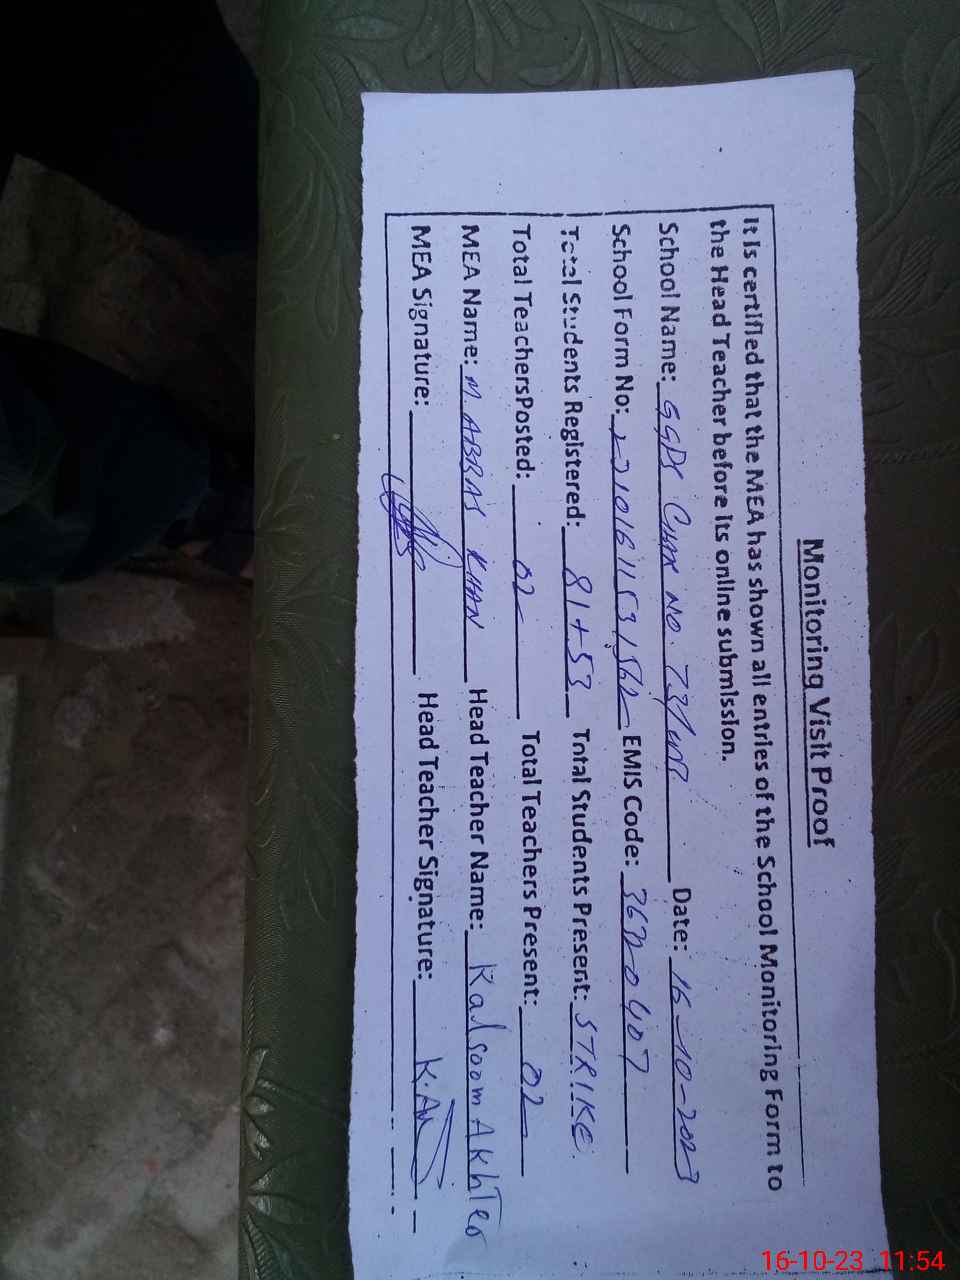 Monitoring Visit Proof
It is certified that the MEA has shown all entries of the School Monitoring Form to
the Head Teacher before its online submission.
School Name: GGPS Chak No. 73/ Date: 16-10-2023
School Form No: EMIS Code: 36320407
Total Students Registered: 81+53 Total Students Present: STRIKE.
Total TeachersPosted: 02 Total Teachers Present: 02
MEA Name: M. ABBAS KHAN Head Teacher Name: Kalsoom Akhter
MEA Signature: Head Teacher Signature: K.A
16-10-23 11:54